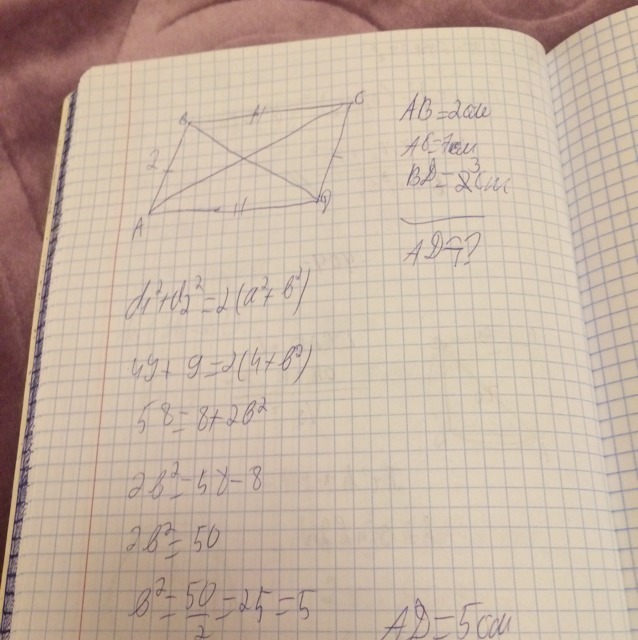 B C
2
A D
AB=2см
AC=7см
BD=3см
AD=?
d₁²+d₂²=2(a²+b²)
49+9=2(4+b²)
58=8+2b²
2b²=58-8
2b²=50
b²=50/2=25=5
AD=5см